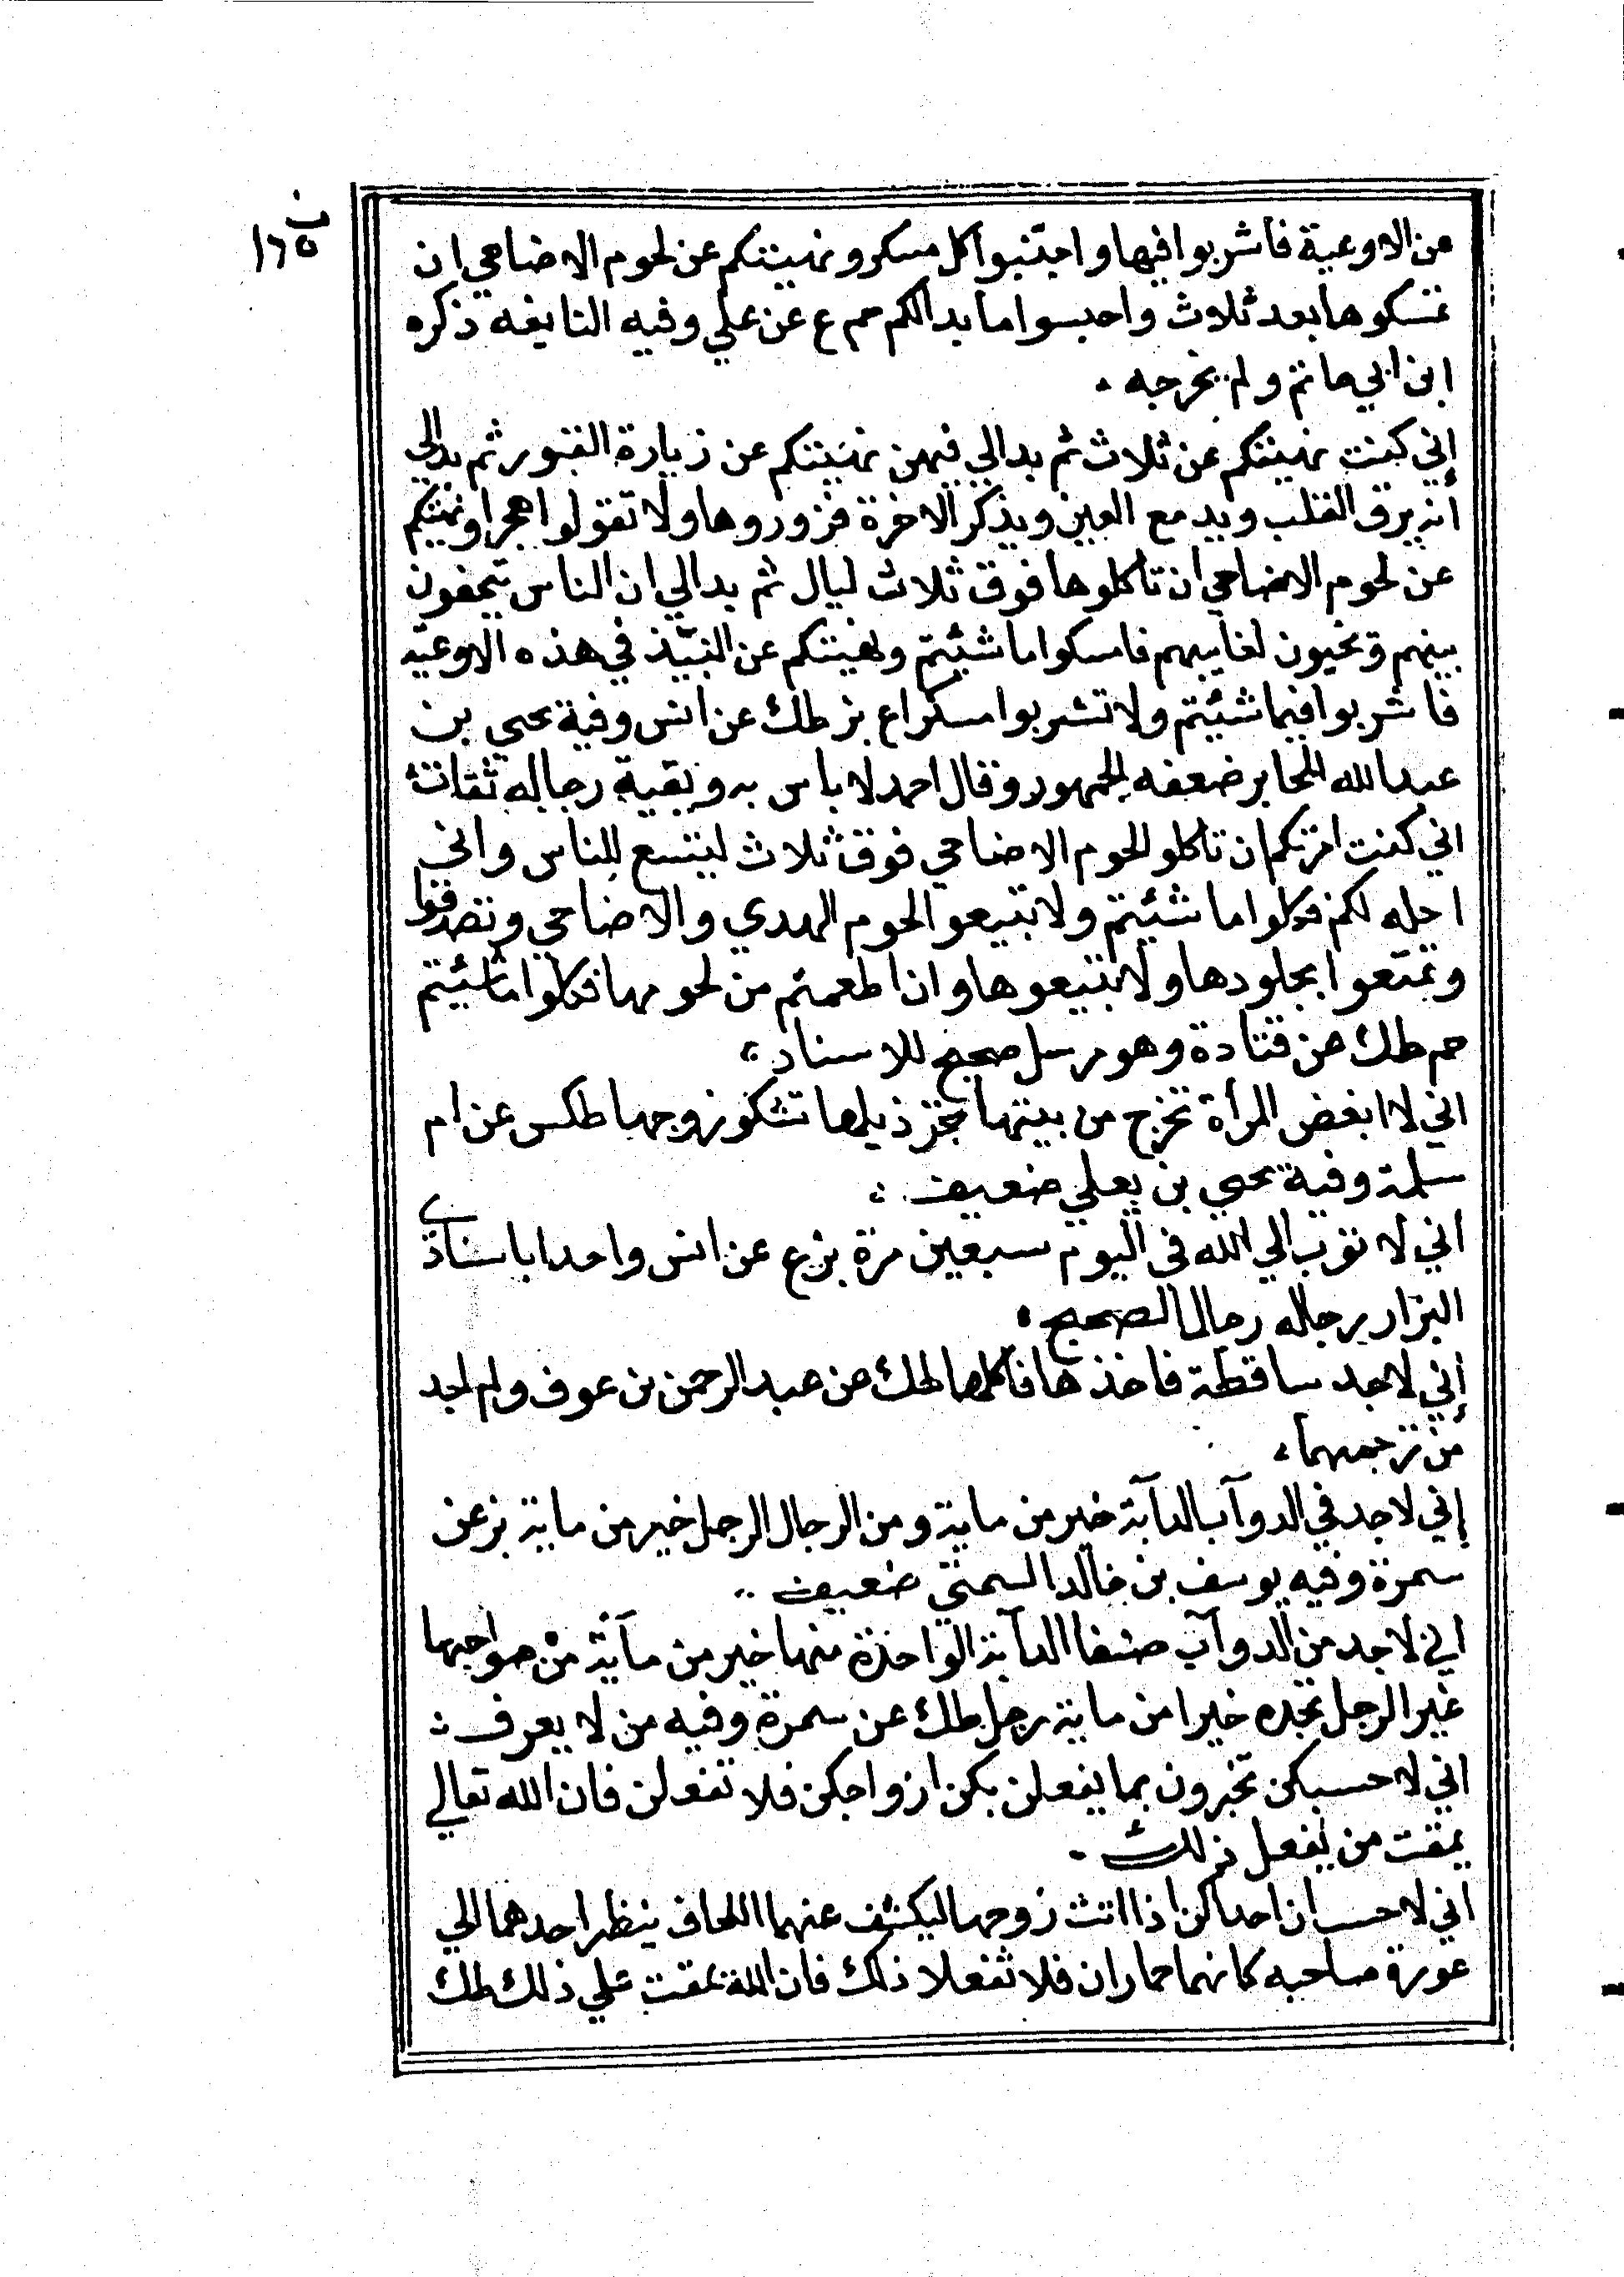 ن
١٦٥
من الاوعية فاشربوا فيها واجتنبوا كل مسكر ونهيتكم عن لحوم الاضاحي ان
تمسكوها بعد ثلاث واحبسوا ما بدا لكم حم ع عن علي وفيه النابغه ذكره
ابن ابي حاتم ولم يخرجه
إني كنت نهيتكم عن ثلاث ثم بدالي فيهن نهيتكم عن زيارة القبور ثم بدالي
انه يرق القلب ويدمع العين ويذكر الاخرة فزوروها ولا تقولوا هجرا ونهيتكم
عن لحوم الاضاحي ان تاكلوها فوق ثلاث ليال ثم بدالي ان الناس يتحفون
بينهم ويخبون لغايبهم فامسكوا ما شئتم ونهيتكم عن النبيذ في هذه الاوعيه
فاشربوا فيما شئتم ولا تشربوا مسكرا ع بز طك عن انس وفية يحيي بن
عبدالله الجابر ضعفه الجمهور وقال احمد لا باس به وبقية رجاله ثقات
اني كنت امرتكم ان تاكلو لحوم الاضاحي فوق ثلاث ليتسع للناس واني
احله لكم فكلوا ما شئتم ولا تبيعو الحوم الهدي والاضاحي وتصدقوا
وتمتعوا بجلودها ولا تبيعوها وان اطعمتم من لحومها فكلوا ما شئيتم
حم طك عن قتادة وهو مرسل صحيح للاسناد
اني لا ابغض المرأة تخرج من بيتها تجر ذيلها تشكو زوجها طكس عن ام
سلمة وفية يحيي بن يعلي ضعيف
اني لا توب الي الله في اليوم سبعين مرة بز ع عن انس واحد اباسنادي
البزار رجاله رجال الصحيح
إني لاجد ساقطة فاخذها فاكلها طك عن عبد الرحمن بن عوف ولم اجد
من ترجمهما
إني لاجد في الدوآب الدآبة خير من ماية ومن الرجال الرجل خير من ماية بز عن
سمرة وفيه يوسف بن خالد السمتي ضعيف
اني لاجد من الدوآب صنفا الدآبة الواحدة منها خير من مآئة من صواحبها
غير الرجل تجده خيرا من ماية رجل طك عن سمرة وفيه من لا يعرف
اني لا حسبكن تخبرون بما يفعلن بكن ازواجكن فلا تفعلن فان الله تعالي
يمقت من يفعل ذلك
اني لا حسب ان احداكن اذا اتت زوجها ليكشف عنهما اللحاف ينظر احدهما الي
عورة صاحبه كانهما حماران فلا تفعلا ذلك فان اللة يمقت علي ذلك طك